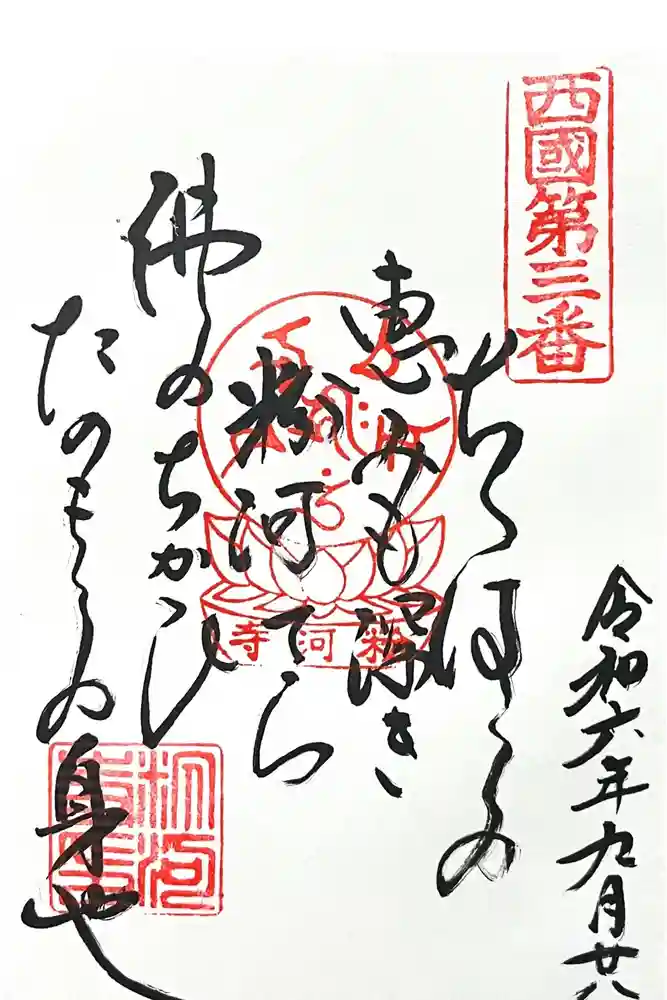 西國第三番
令和六年九月廿八
ちゝはゝの
恵みも深き
粉河てら
佛のちかひ
たのもしの身也
粉河寺
粉河